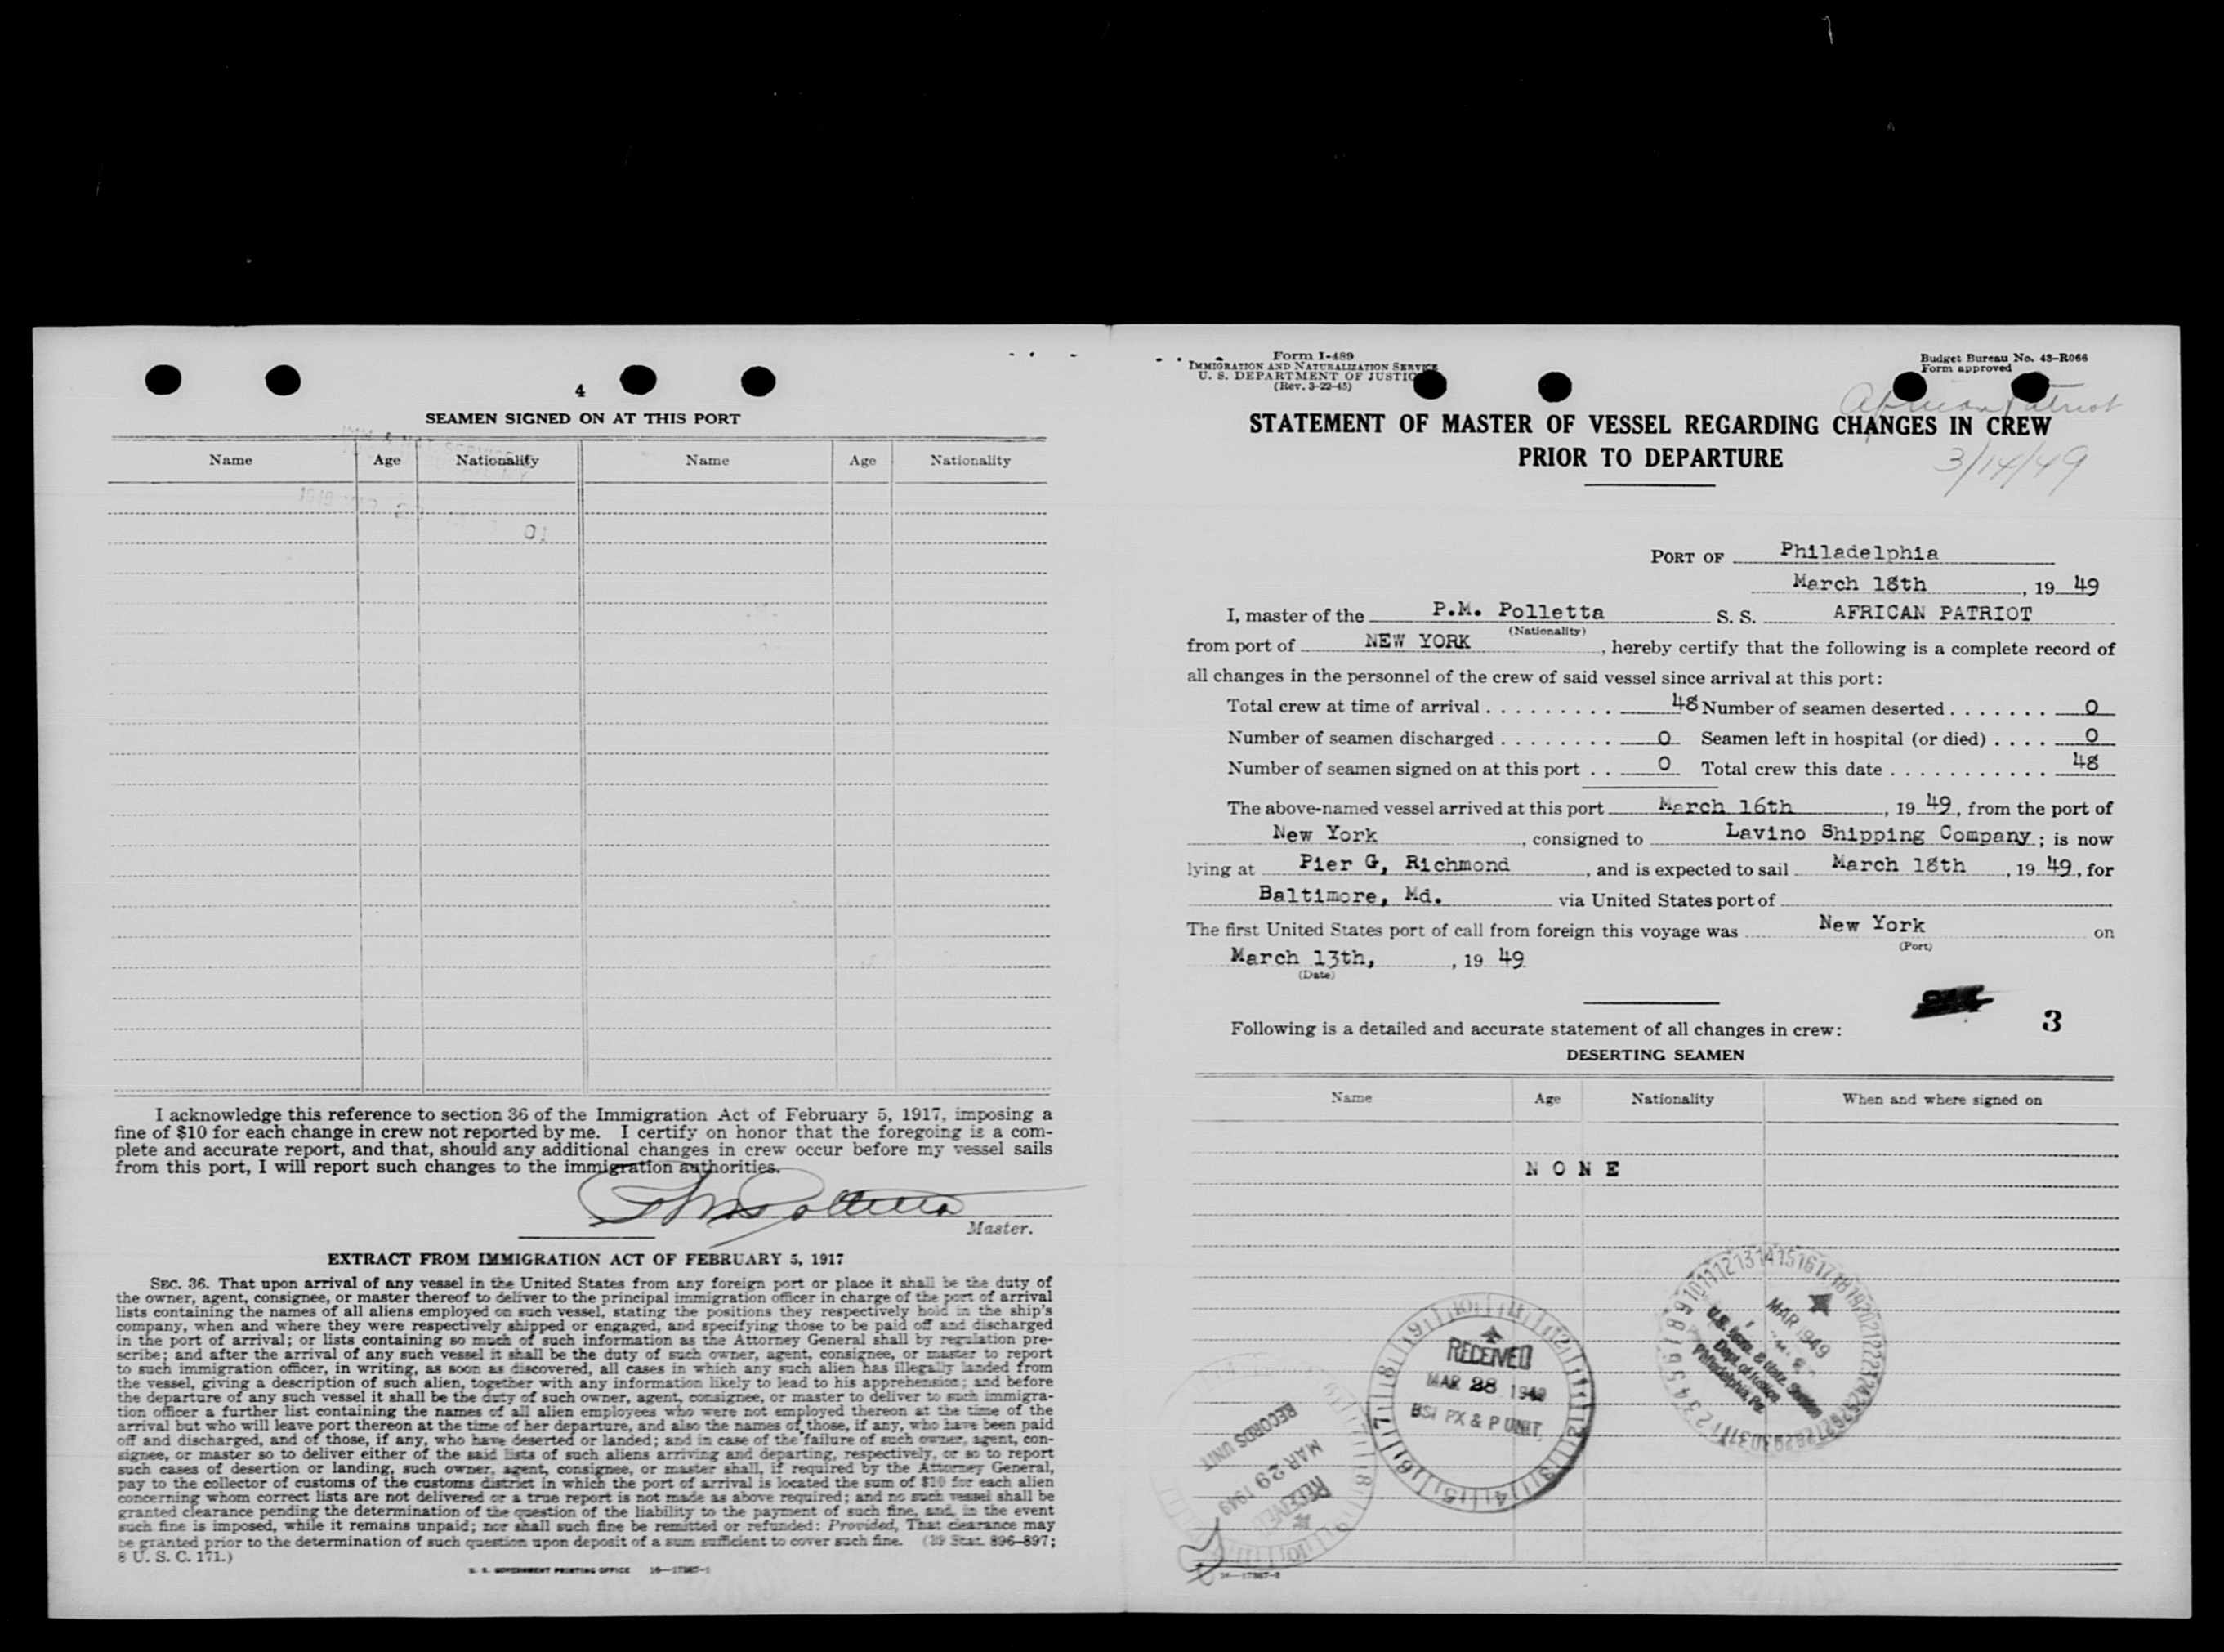 4
SEAMEN SIGNED ON AT THIS PORT
Name Age Nationality Name Age Nationality
I acknowledge this reference to section 36 of the Immigration Act of February 5, 1917, imposing a
fine of $10 for each change in crew not reported by me. I certify on honor that the foregoing is a com-
plete and accurate report, and that, should any additional changes in crew occur before my vessel sails
from this port, I will report such changes to the immigration authorities.
Master.
EXTRACT FROM IMMIGRATION ACT OF FEBRUARY 5, 1917
SEC. 36. That upon arrival of any vessel in the United States from any foreign port or place it shall be the duty of
the owner, agent, consignee, or master thereof to deliver to the principal immigration officer in charge of the port of arrival
lists containing the names of all aliens employed on such vessel, stating the positions they respectively hold in the ship's
company, when and where they were respectively shipped or engaged, and specifying those to be paid off and discharged
in the port of arrival; or lists containing so much of such information as the Attorney General shall by regulation pre-
scribe; and after the arrival of any such vessel it shall be the duty of such owner, agent, consignee, or master to report
to such immigration officer, in writing, as soon as discovered, all cases in which any such alien has illegally landed from
the vessel, giving a description of such alien, together with any information likely to lead to his apprehension; and before
the departure of any such vessel it shall be the duty of such owner, agent, consignee, or master to deliver to such immigra-
tion officer a further list containing the names of all alien employees who were not employed thereon at the time of the
arrival but who will leave port thereon at the time of her departure, and also the names of those, if any, who have been paid
off and discharged, and of those, if any, who have deserted or landed; and in case of the failure of such owner, agent, con-
signee, or master so to deliver either of the said lists of such aliens arriving and departing, respectively, or so to report
such cases of desertion or landing, such owner, agent, consignee, or master shall, if required by the Attorney General,
pay to the collector of customs of the customs district in which the port of arrival is located the sum of $10 for each alien
concerning whom correct lists are not delivered or a true report is not made as above required; and no such vessel shall be
granted clearance pending the determination of the question of the liability to the payment of such fine, and, in the event
such fine is imposed, while it remains unpaid; nor shall such fine be remitted or refunded: Provided, That clearance may
be granted prior to the determination of such question upon deposit of a sum sufficient to cover such fine. (39 Stat. 896-897;
8 U. S. C. 171.)
U. S. GOVERNMENT PRINTING OFFICE 16-17987-1
Form I-489
IMMIGRATION AND NATURALIZATION SERVICE
U. S. DEPARTMENT OF JUSTICE
(Rev. 3-22-45)
Budget Bureau No. 43-R066
Form approved
African Patriot
3/14/49
STATEMENT OF MASTER OF VESSEL REGARDING CHANGES IN CREW
PRIOR TO DEPARTURE
PORT OF Philadelphia
March 18th, 19 49
I, master of the P.M. Polletta S. S. AFRICAN PATRIOT
(Nationality)
from port of NEW YORK, hereby certify that the following is a complete record of
all changes in the personnel of the crew of said vessel since arrival at this port:
Total crew at time of arrival 48 Number of seamen deserted 0
Number of seamen discharged 0 Seamen left in hospital (or died) 0
Number of seamen signed on at this port 0 Total crew this date 48
The above-named vessel arrived at this port March 16th, 19 49, from the port of
New York, consigned to Lavino Shipping Company; is now
lying at Pier G, Richmond, and is expected to sail March 18th, 19 49, for
Baltimore, Md. via United States port of
The first United States port of call from foreign this voyage was New York on
(Port)
March 13th, , 19 49
(Date)
3
Following is a detailed and accurate statement of all changes in crew:
DESERTING SEAMEN
Name Age Nationality When and where signed on
N O N E
RECEIVED
MAR 28 1949
BSI PX & P UNIT
RECEIVED
MAR 29 1949
RECORDS UNIT
MAR 1949
Dept. of Justice
Philadelphia, Pa.